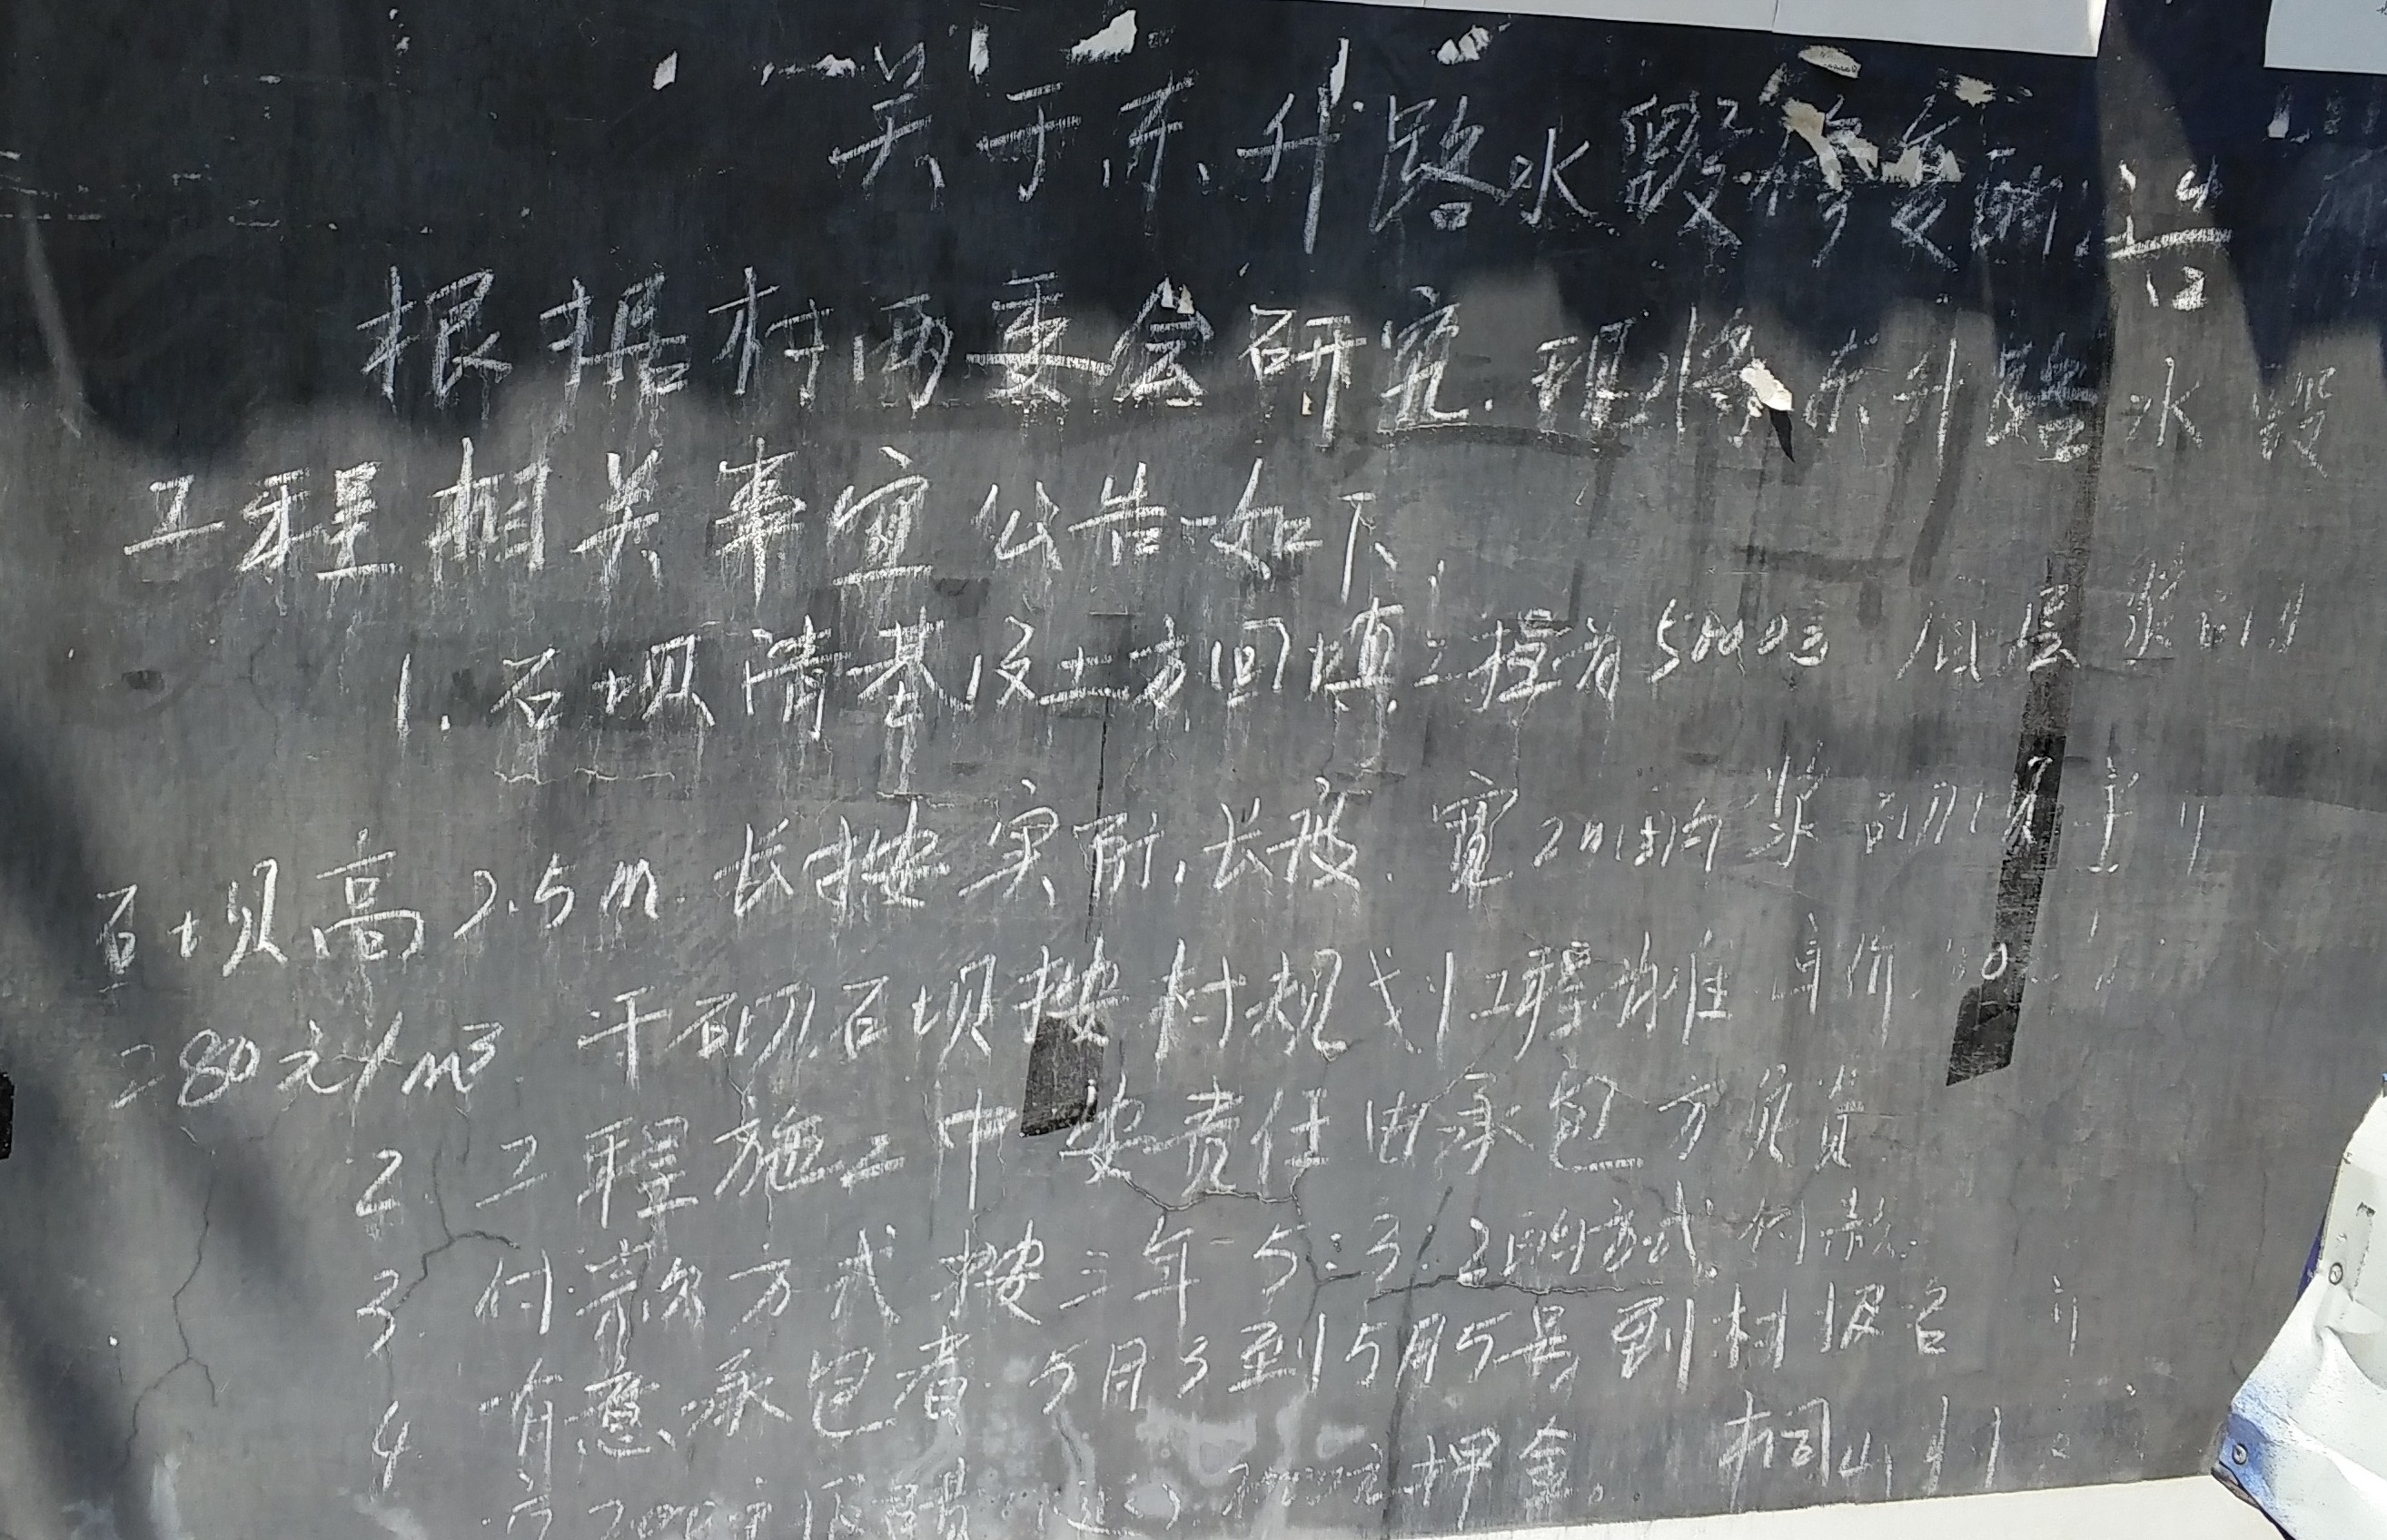 关于东升路水毁修复的公告
根据村两委会研究.现将东升路水毁
工程相关事宜公告如下:
1.石坝清基及土方回填工程为5000元 底层浆砌
石坝高2.5m.长按实际长度.宽2m的浆砌
280元/m³ 干砌石坝按村规划工程为准 单价
2.工程施工中安责任由承包方负责
3.付款方式按三年5:3:2的方式付款
4.有意承包者.5月3到5月5号到村报名
押金。 桐山村